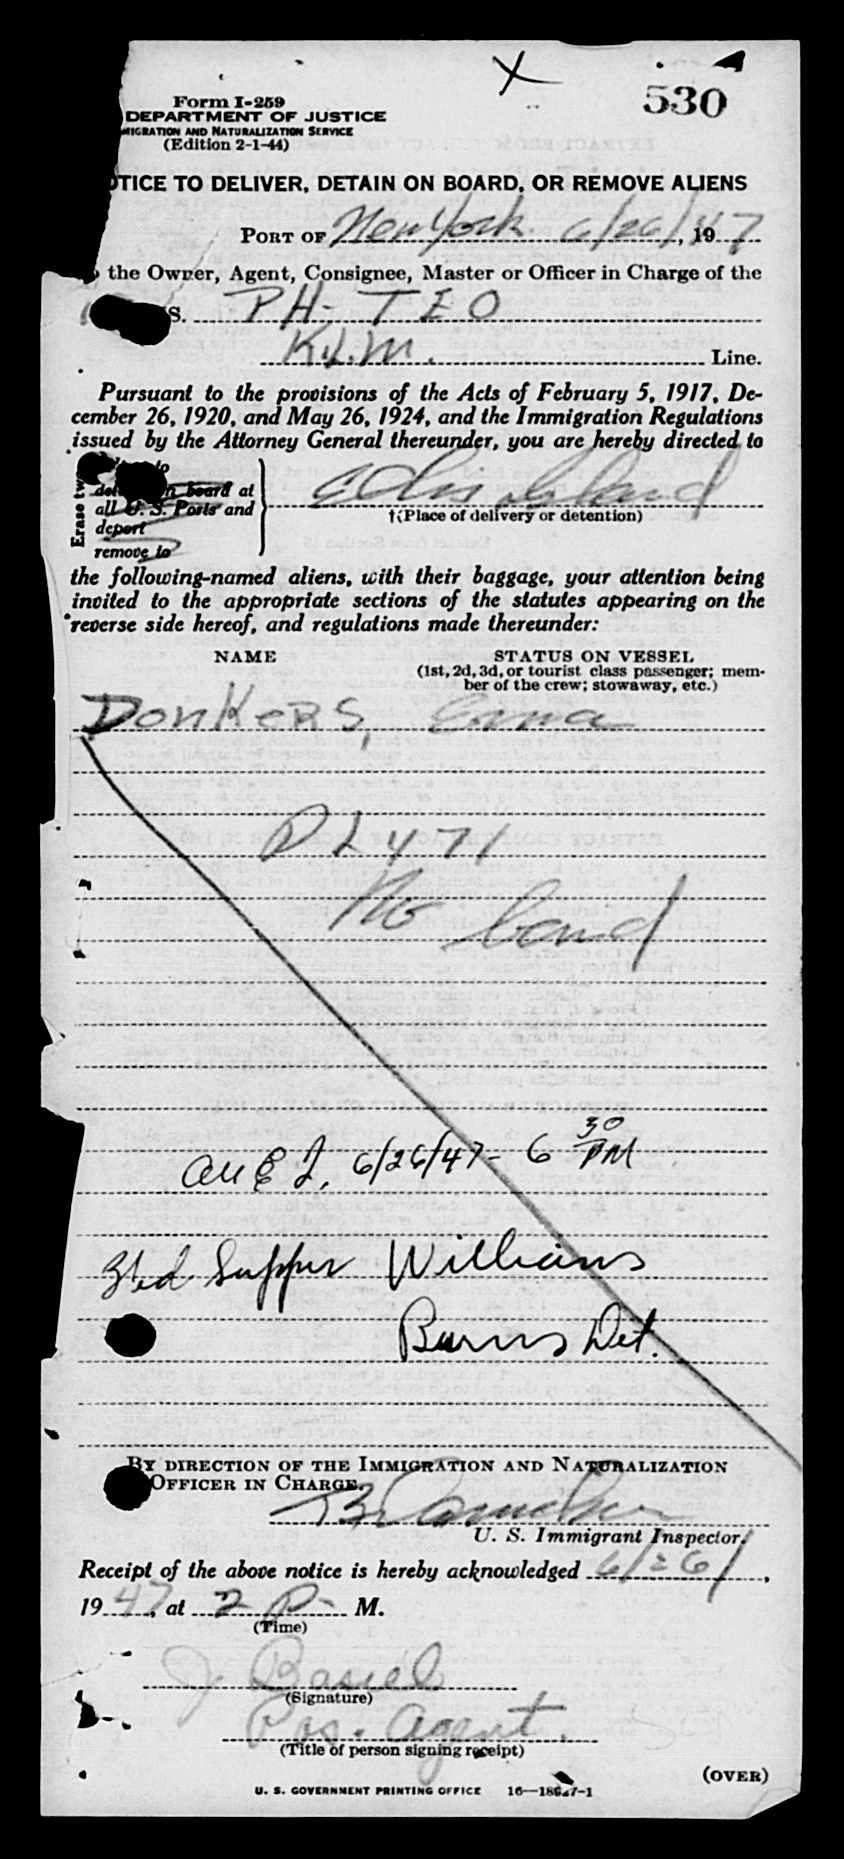 530
Form I-259
DEPARTMENT OF JUSTICE
IMMIGRATION AND NATURALIZATION SERVICE
(Edition 2-1-44)
NOTICE TO DELIVER, DETAIN ON BOARD, OR REMOVE ALIENS
PORT OF New York 6/26/, 1947
To the Owner, Agent, Consignee, Master or Officer in Charge of the
S. PH-TEO
K.L.M. Line.
Pursuant to the provisions of the Acts of February 5, 1917, De-
cember 26, 1920, and May 26, 1924, and the Immigration Regulations
issued by the Attorney General thereunder, you are hereby directed to
Erase two
to
detain on board at
all U. S. Ports and
deport
remove to
Ellis Island
†(Place of delivery or detention)
the following-named aliens, with their baggage, your attention being
invited to the appropriate sections of the statutes appearing on the
reverse side hereof, and regulations made thereunder:
NAME STATUS ON VESSEL
(1st, 2d, 3d, or tourist class passenger; mem-
ber of the crew; stowaway, etc.)
Donkers, Erna
P L 471
No band
6/26/47 - 6 30 PM
Supper Williams
Burns Det.
BY DIRECTION OF THE IMMIGRATION AND NATURALIZATION
OFFICER IN CHARGE.
U. S. Immigrant Inspector.
Receipt of the above notice is hereby acknowledged 6/26/,
1947, at 2 P- M.
(Time)
J Basiel
(Signature)
Pas. Agent.
(Title of person signing receipt)
(OVER)
U. S. GOVERNMENT PRINTING OFFICE